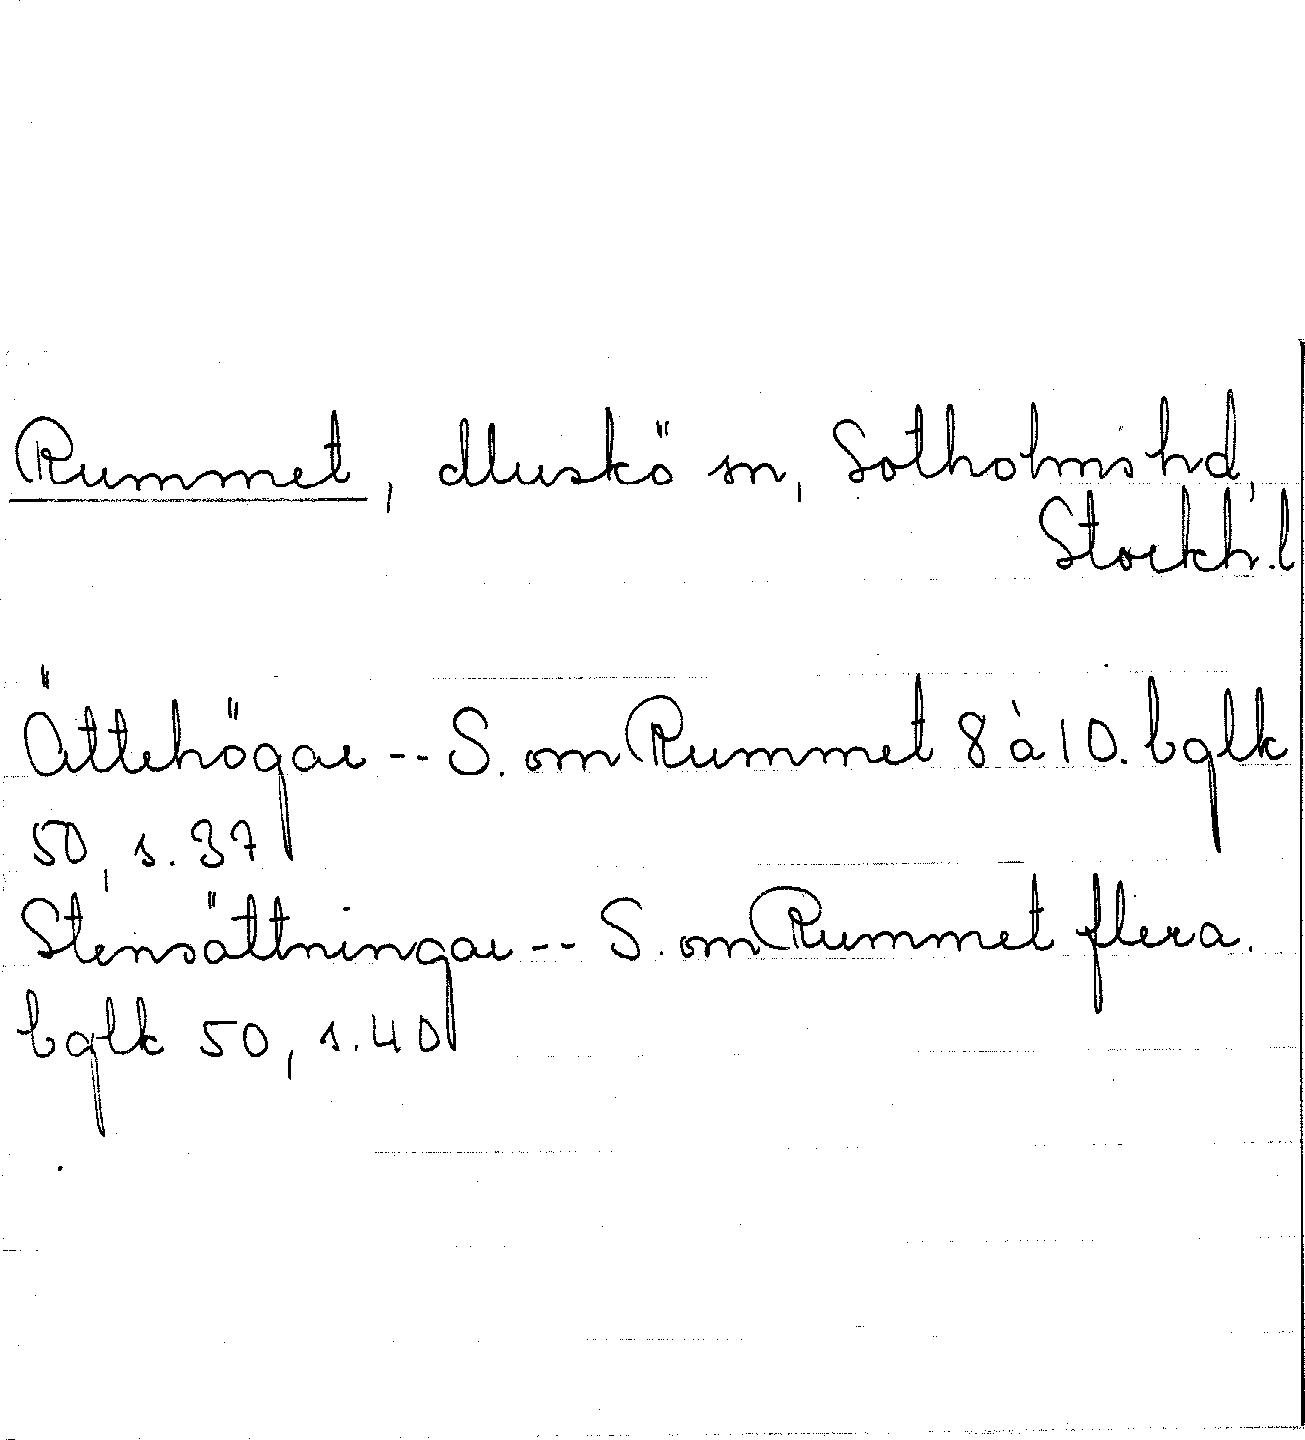 Rummet, Muskö sn, Sotholms hd,
Stockh.l
Ättehögar -- S. om Rummet 8 à 10. bglk
50, s. 37
Stensättningar -- S. om Rummet flera.
bglk 50, s. 40